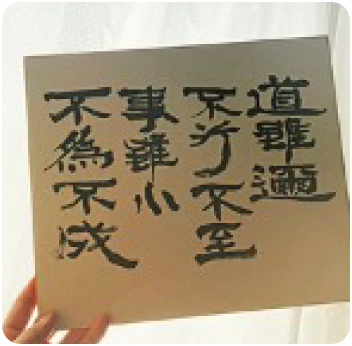 道雖邇
不行不至
事雖小
不為不成